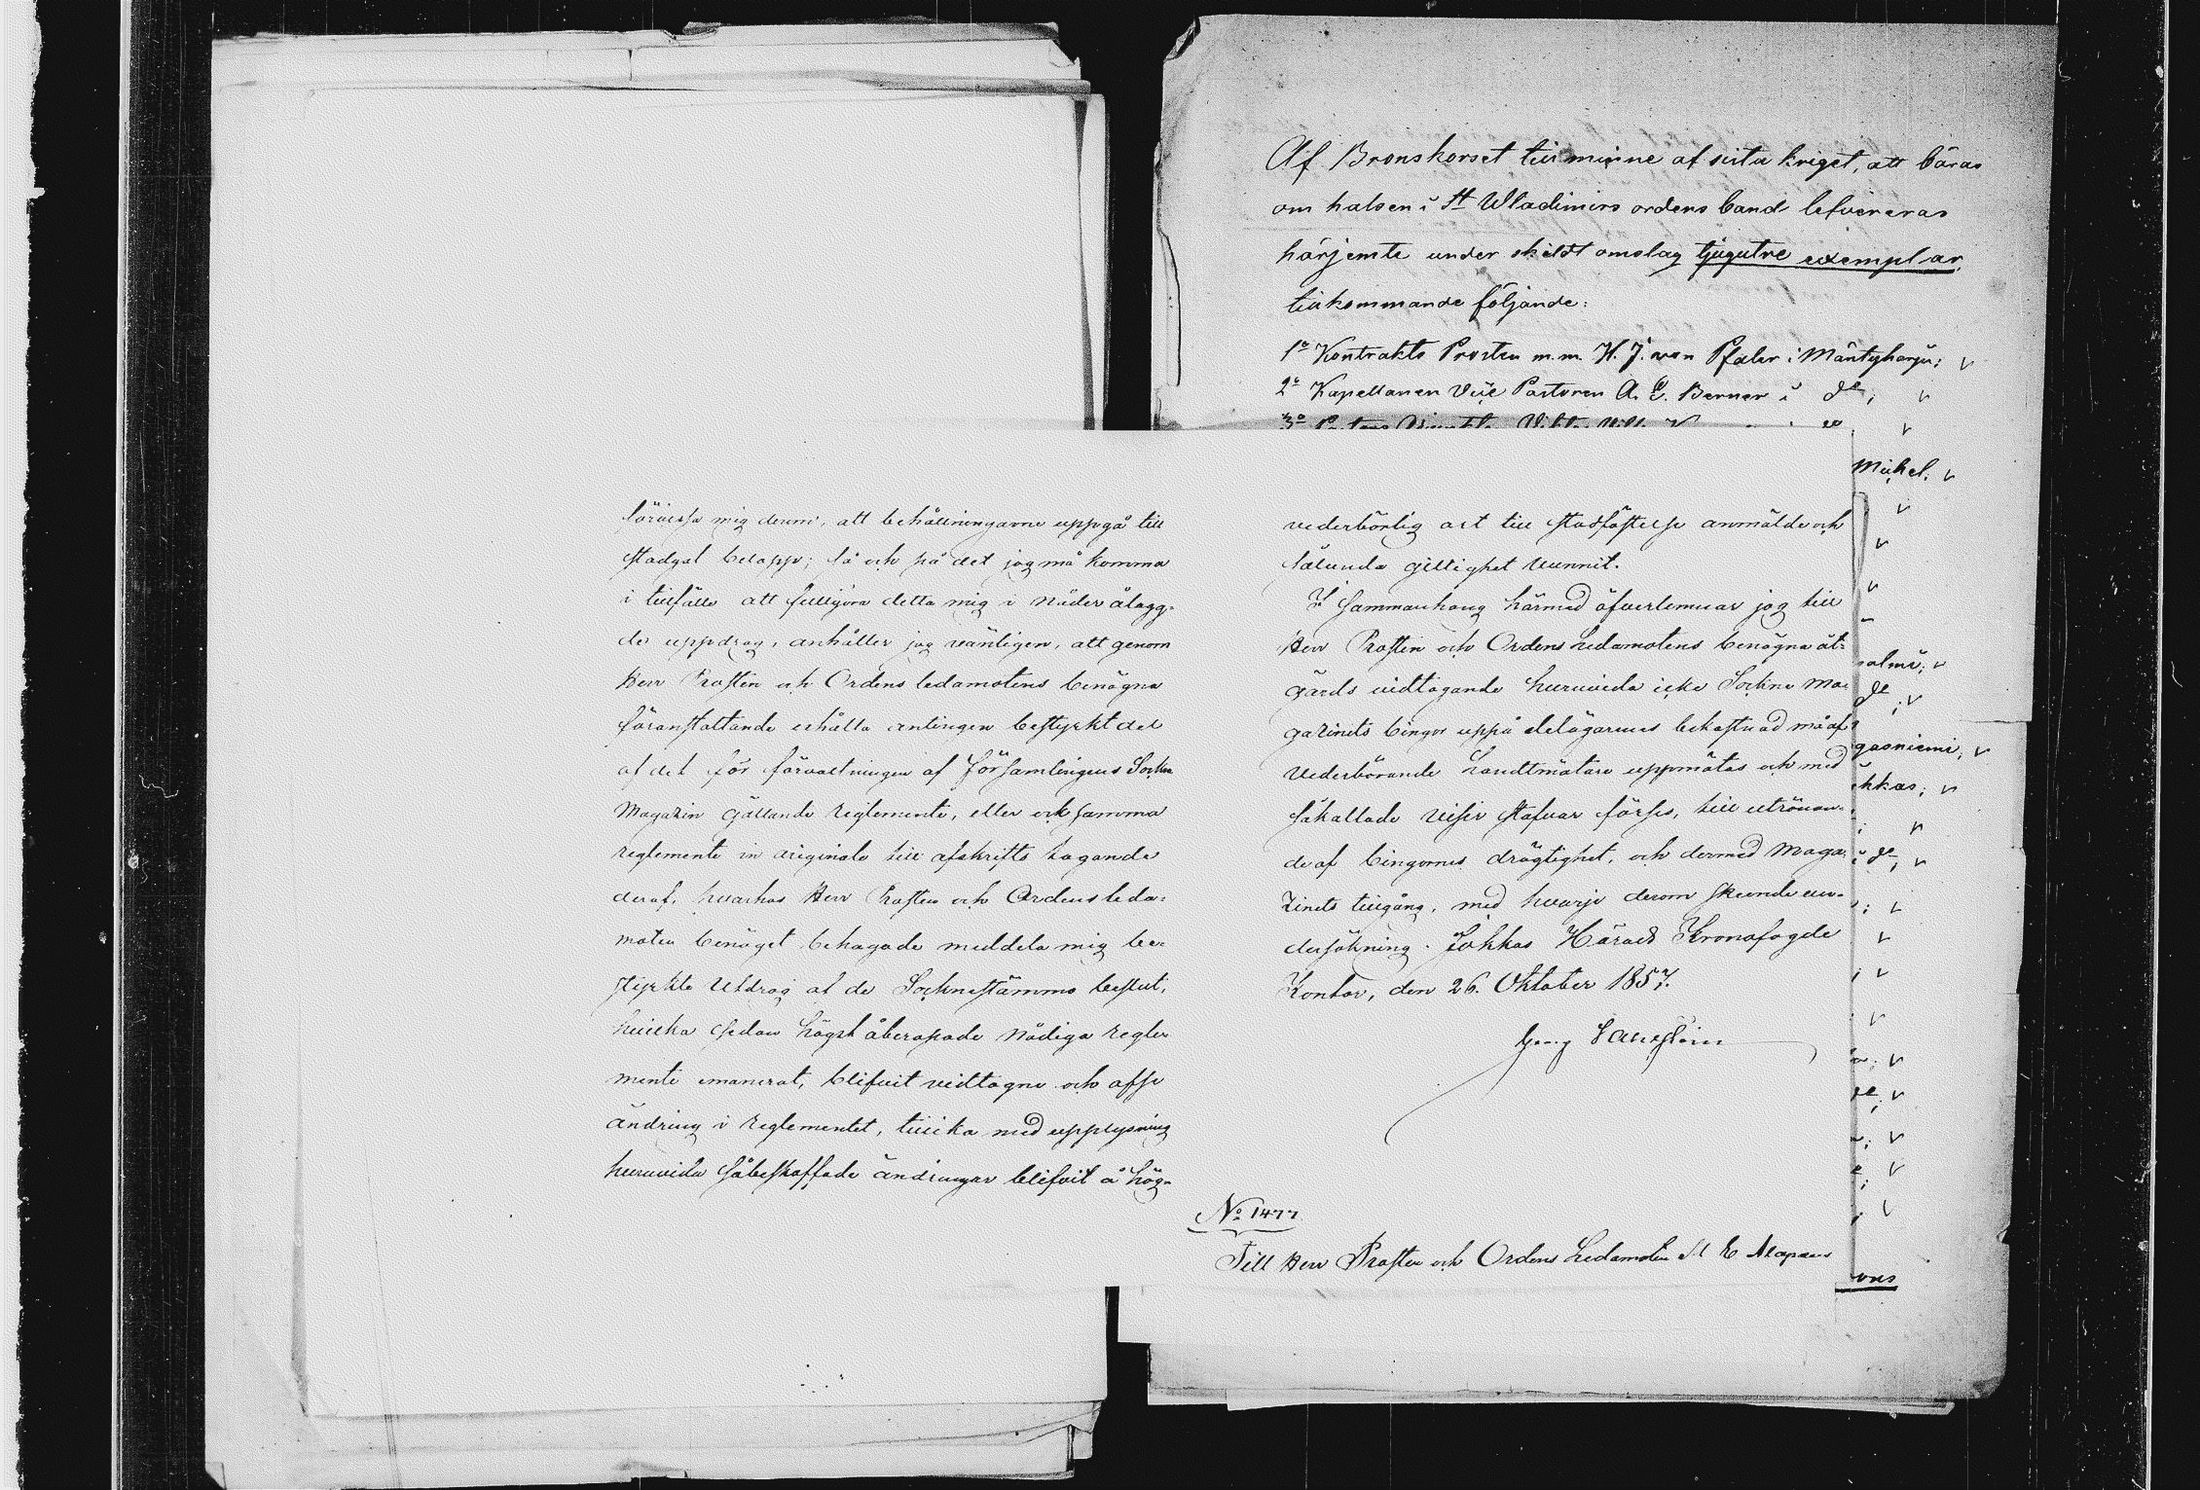 Af Bronskorset till minne af sista kriget, att bäras
om halsen i St Wladimirs ordens band lefvereras
härjemte under skildt omslag tjugutre exemplar,
tillkommande följande:
1o Kontrakts Prosten m.m. H. J. von Pfaler i Mäntyharju; v
2o Kapellanen Vice Pastoren A. E. Berner i do; v
3o
Michel; v
salmi; v
do; v
gasniemi; v
kkas; v
i do; v
förvissa mig derom, att behållningarne uppgå till
stadgat belopp; så och på det jag må komma
i tillfälle att fullgöra detta mig i Nåder ålagg-
de uppdrag, anhåller jag vänligen, att genom
Herr Prosten och Ordens ledamotens benägna
föranstaltande erhålla antingen bestyrkt del
af det för förvaltningen af Församlingens Sockne
Magazin gällande reglemente, eller ock samma
reglemente in originale till afskrifts tagande
deraf, hvarhos Herr Prosten och Ordensleda-
moten benäget behagade meddela mig be-
styrkte Utdrag af de Socknestämmo beslut,
hvilka sedan högst åberopade Nådiga regle-
mente emanerat, blifvit vidtagne och afse
ändring i reglementet, tillika med upplysning
huruvida såbeskaffade ändringar blifvit å hög-
vederbörlig ort till stadfästelse anmälde och
sålunda gillighet vunnit.
I sammanhang härmed öfverlemnar jag till
Herr Prosten och Ordens Ledamotens benägna åt-
gärds vidtagande huruvida icke Sockne Ma-
gazinets bingar uppå delägarnes bekostnad må af
Vederbörande Landtmätare uppmätas och med
såkallade visir stafvar förses, till utrönan-
de af bingarnes drägtighet, och dermed Maga-
zinets tillgång, med hvarje derom skeende un-
dersökning. Jokkas Härads Kronofogde
Kontor, den 26. Oktober 1857.
Georg
No 1477
Till Herr Prosten och Ordens Ledamoten